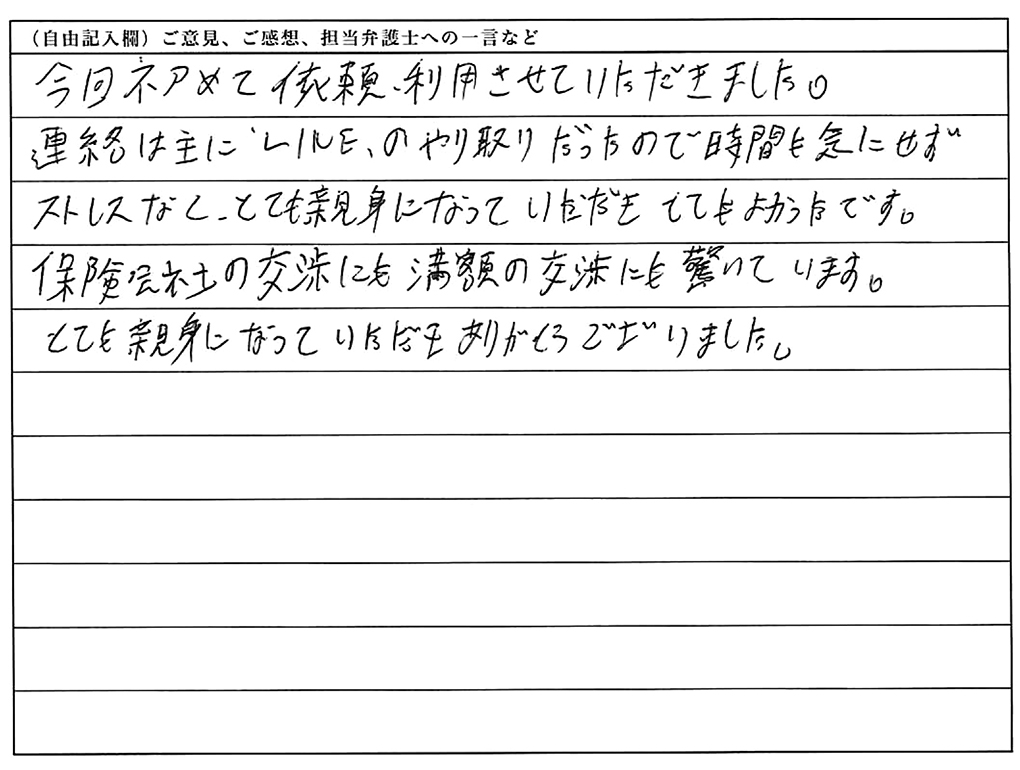 （自由記入欄）ご意見、ご感想、担当弁護士への一言など
今回初めて依頼、利用させていただきました。
連絡は主に"LINE、のやり取りだったので時間も気にせず
ストレスなく、とても親身になっていただき とてもよかったです。
保険会社の交渉にも満額の交渉にも驚いています。
とても親身になっていただきありがとうございました。